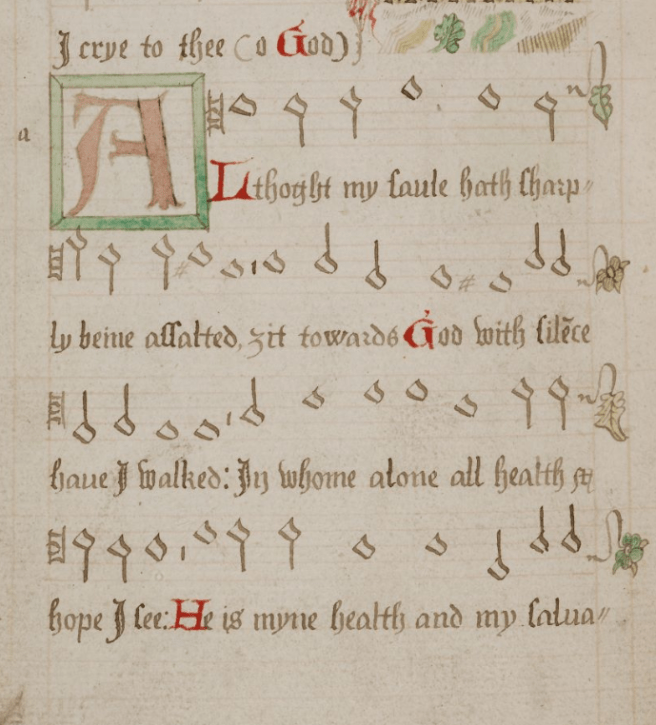 I crye to thee (o God)
a
A
Lthoght my saule hath sharp〃
ly beine assalted, ȝit towards God with silēce
haue I walked: In whome alone all health &
hope I see: He is myne health and my salua〃